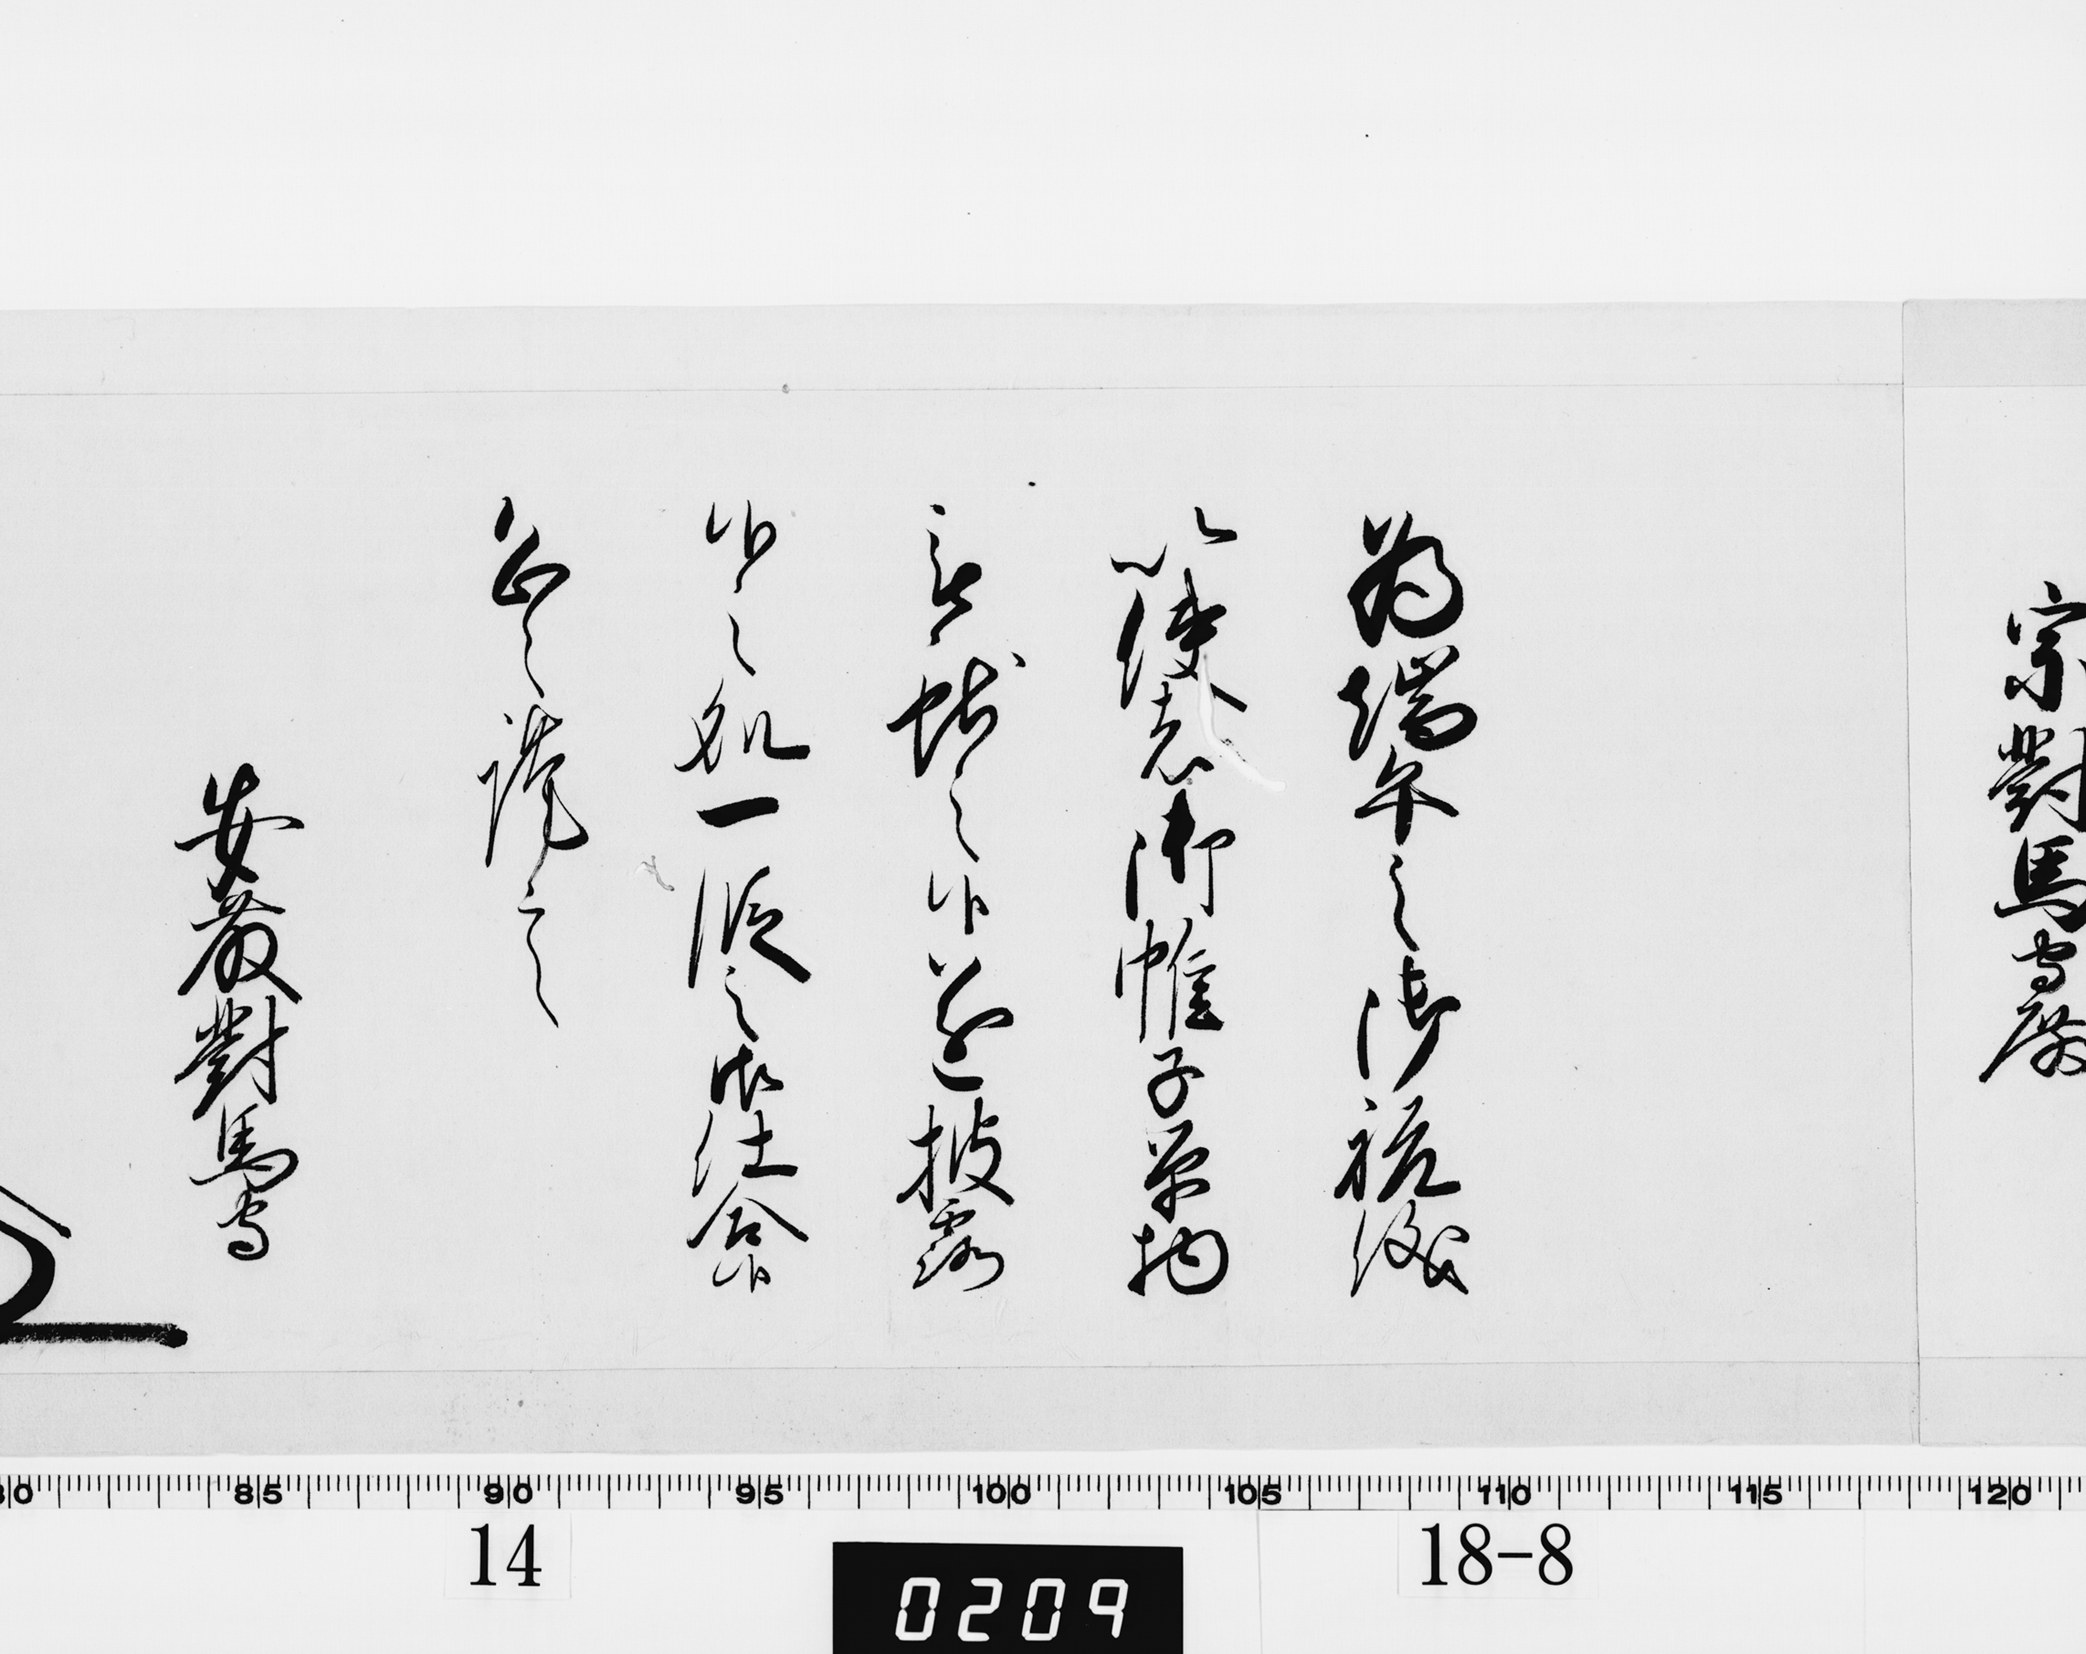 宗對馬守殿
為端午之御祝儀
以使者御帷子單物
被献之候遂披露
候之処一段之御仕合候
恐々謹言
安藤對馬守
80 85 90 95 100 105 110 115 120
14
18-8
0209